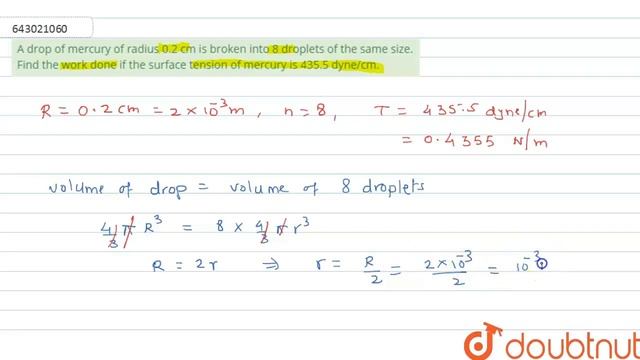 643021060
A drop of mercury of radius 0.2 cm is broken into 8 droplets of the same size.
Find the work done if the surface tension of mercury is 435.5 dyne/cm.
R = 0.2 cm = 2 × 10⁻³ m , n = 8 , T = 435.5 dyne/cm
= 0.4355 N/m
volume of drop = volume of 8 droplets
4/3 π R³ = 8 × 4/3 π r³
R = 2r ⇒ r = R/2 = 2×10⁻³/2 = 10⁻³
doubtnut